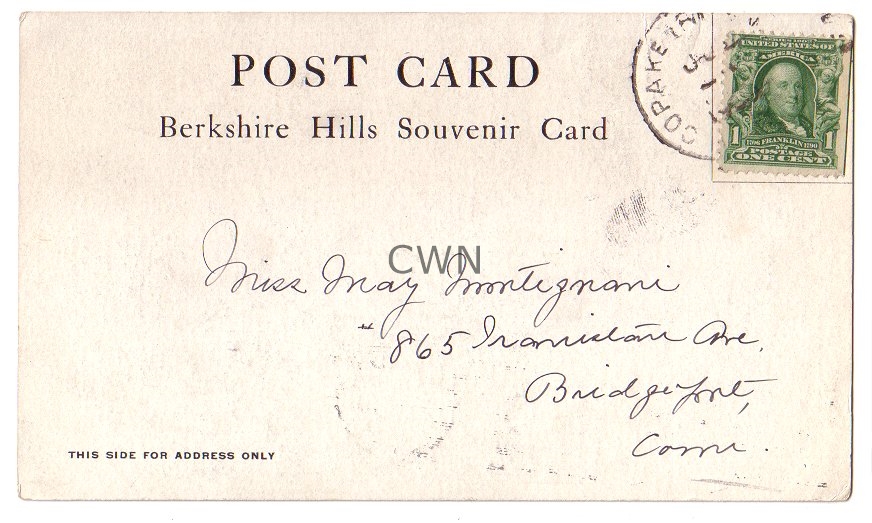 POST CARD
Berkshire Hills Souvenir Card
COPAKE
SERIES 1902
UNITED STATES OF
AMERICA
1706 FRANKLIN 1790
1 POSTAGE 1
ONE CENT
CWN
Miss May Montignani
# 865 Iranistan Ave.
Bridgeport,
Conn.
THIS SIDE FOR ADDRESS ONLY